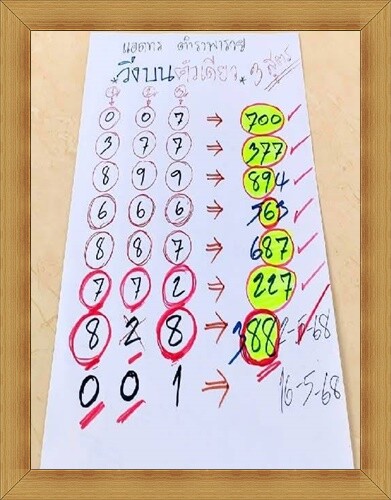 แอดทร ตำราพารวย
*วิ่งบนตัวเดียว* 3 สูตร
0 0 7 ⇒ 700 ✓
3 7 7 ⇒ 377 ✓
8 9 9 ⇒ 894 ✓
6 6 6 ⇒ 563 ✓
8 8 7 ⇒ 687 ✓
7 7 2 ⇒ 227 ✓
8 2 8 ⇒ 388 2-5-68
0 0 1 ⇒ 16-5-68